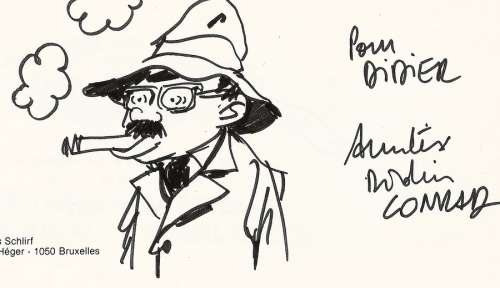 Pour
DIDIER
Amitiés
CONRAD
s Schlirf
Héger - 1050 Bruxelles